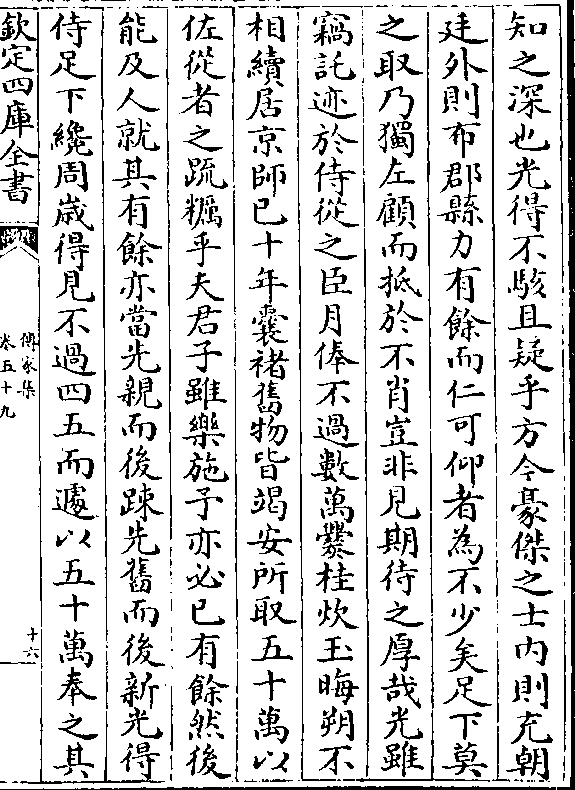 知之深也光得不駭且疑乎方今豪傑之士内則充朝
廷外則布郡縣力有餘而仁可仰者為不少矣足下莫
之取乃獨左顧而抵於不肖豈非見期待之厚哉光雖
竊託迹於侍從之臣月俸不過數萬爨桂炊玉晦朔不
相續居京師已十年囊褚舊物皆竭安所取五十萬以
佐從者之蔬糲乎夫君子雖樂施予亦必已有餘然後
能及人就其有餘亦當先親而後踈先舊而後新光得
侍足下纔周歲得見不過四五而遽以五十萬奉之其
欽定四庫全書
傳家集
卷五十九
十六